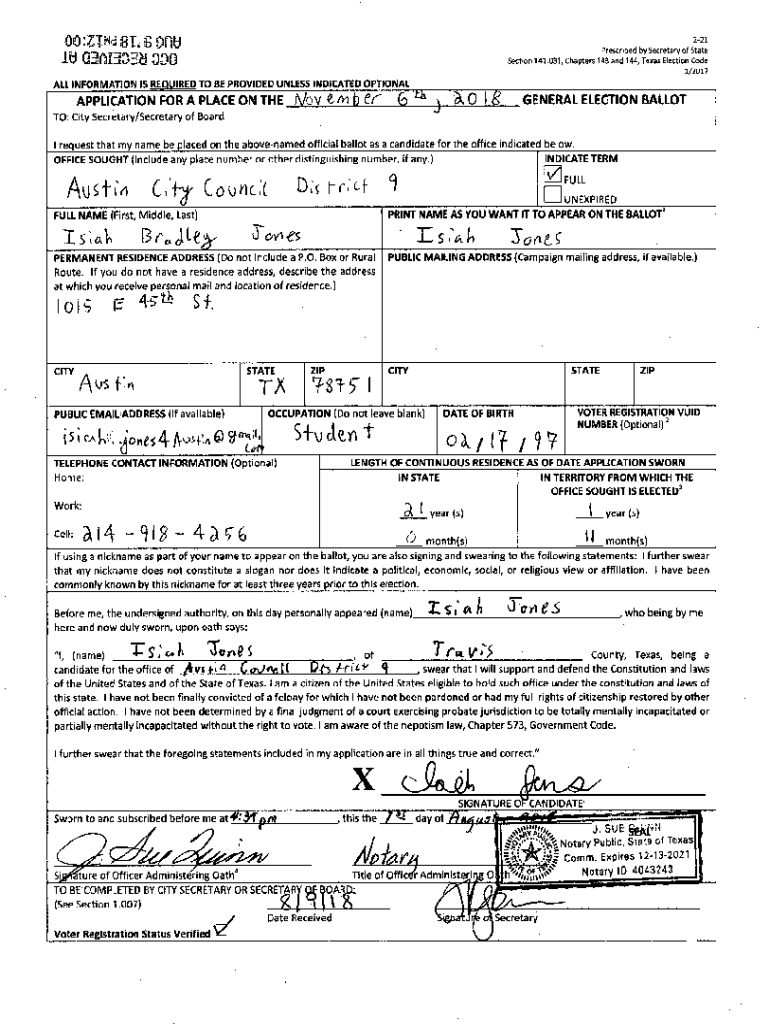 OCC RECEIVED AT
AUG 9'18 PM12:00
2-21
Prescribed by Secretary of State
Section 141.031, Chapters 143 and 144, Texas Election Code
1/2017
ALL INFORMATION IS REQUIRED TO BE PROVIDED UNLESS INDICATED OPTIONAL
APPLICATION FOR A PLACE ON THE November 6th, 2018 GENERAL ELECTION BALLOT
TO: City Secretary/Secretary of Board
I request that my name be placed on the above-named official ballot as a candidate for the office indicated below.
OFFICE SOUGHT (Include any place number or other distinguishing number, if any.) INDICATE TERM
Austin City Council District 9
FULL
UNEXPIRED
FULL NAME (First, Middle, Last) PRINT NAME AS YOU WANT IT TO APPEAR ON THE BALLOT1
Isiah Bradley Jones Isiah Jones
PERMANENT RESIDENCE ADDRESS (Do not include a P.O. Box or Rural PUBLIC MAILING ADDRESS (Campaign mailing address, if available.)
Route. If you do not have a residence address, describe the address
at which you receive personal mail and location of residence.)
1015 E 45th St.
CITY STATE ZIP CITY STATE ZIP
Austin TX 78751
PUBLIC EMAIL ADDRESS (If available) OCCUPATION (Do not leave blank) DATE OF BIRTH VOTER REGISTRATION VUID
NUMBER (Optional)2
isiah.jones4Austin@gmail.com Student 02/17/97
TELEPHONE CONTACT INFORMATION (Optional) LENGTH OF CONTINUOUS RESIDENCE AS OF DATE APPLICATION SWORN
Home: IN STATE IN TERRITORY FROM WHICH THE
OFFICE SOUGHT IS ELECTED3
Work: 21 year(s) 1 year(s)
Cell: 214-918-4256 0 month(s) 11 month(s)
If using a nickname as part of your name to appear on the ballot, you are also signing and swearing to the following statements: I further swear
that my nickname does not constitute a slogan nor does it indicate a political, economic, social, or religious view or affiliation. I have been
commonly known by this nickname for at least three years prior to this election.
Before me, the undersigned authority, on this day personally appeared (name) Isiah Jones, who being by me
here and now duly sworn, upon oath says:
"I, (name) Isiah Jones, of Travis County, Texas, being a
candidate for the office of Austin Council District 9, swear that I will support and defend the Constitution and laws
of the United States and of the State of Texas. I am a citizen of the United States eligible to hold such office under the constitution and laws of
this state. I have not been finally convicted of a felony for which I have not been pardoned or had my full rights of citizenship restored by other
official action. I have not been determined by a final judgment of a court exercising probate jurisdiction to be totally mentally incapacitated or
partially mentally incapacitated without the right to vote. I am aware of the nepotism law, Chapter 573, Government Code.
I further swear that the foregoing statements included in my application are in all things true and correct."
X
SIGNATURE OF CANDIDATE
Sworn to and subscribed before me at 4:37 pm, this the day of August
J. Sue Quinn Notary
Signature of Officer Administering Oath4 Title of Officer Administering Oath
J. SUE
SEAL
Notary Public, State of Texas
Comm. Expires 12-13-2021
Notary ID 4043243
TO BE COMPLETED BY CITY SECRETARY OR SECRETARY OF BOARD:
(See Section 1.007) 8/9/18
Date Received Signature of Secretary
Voter Registration Status Verified